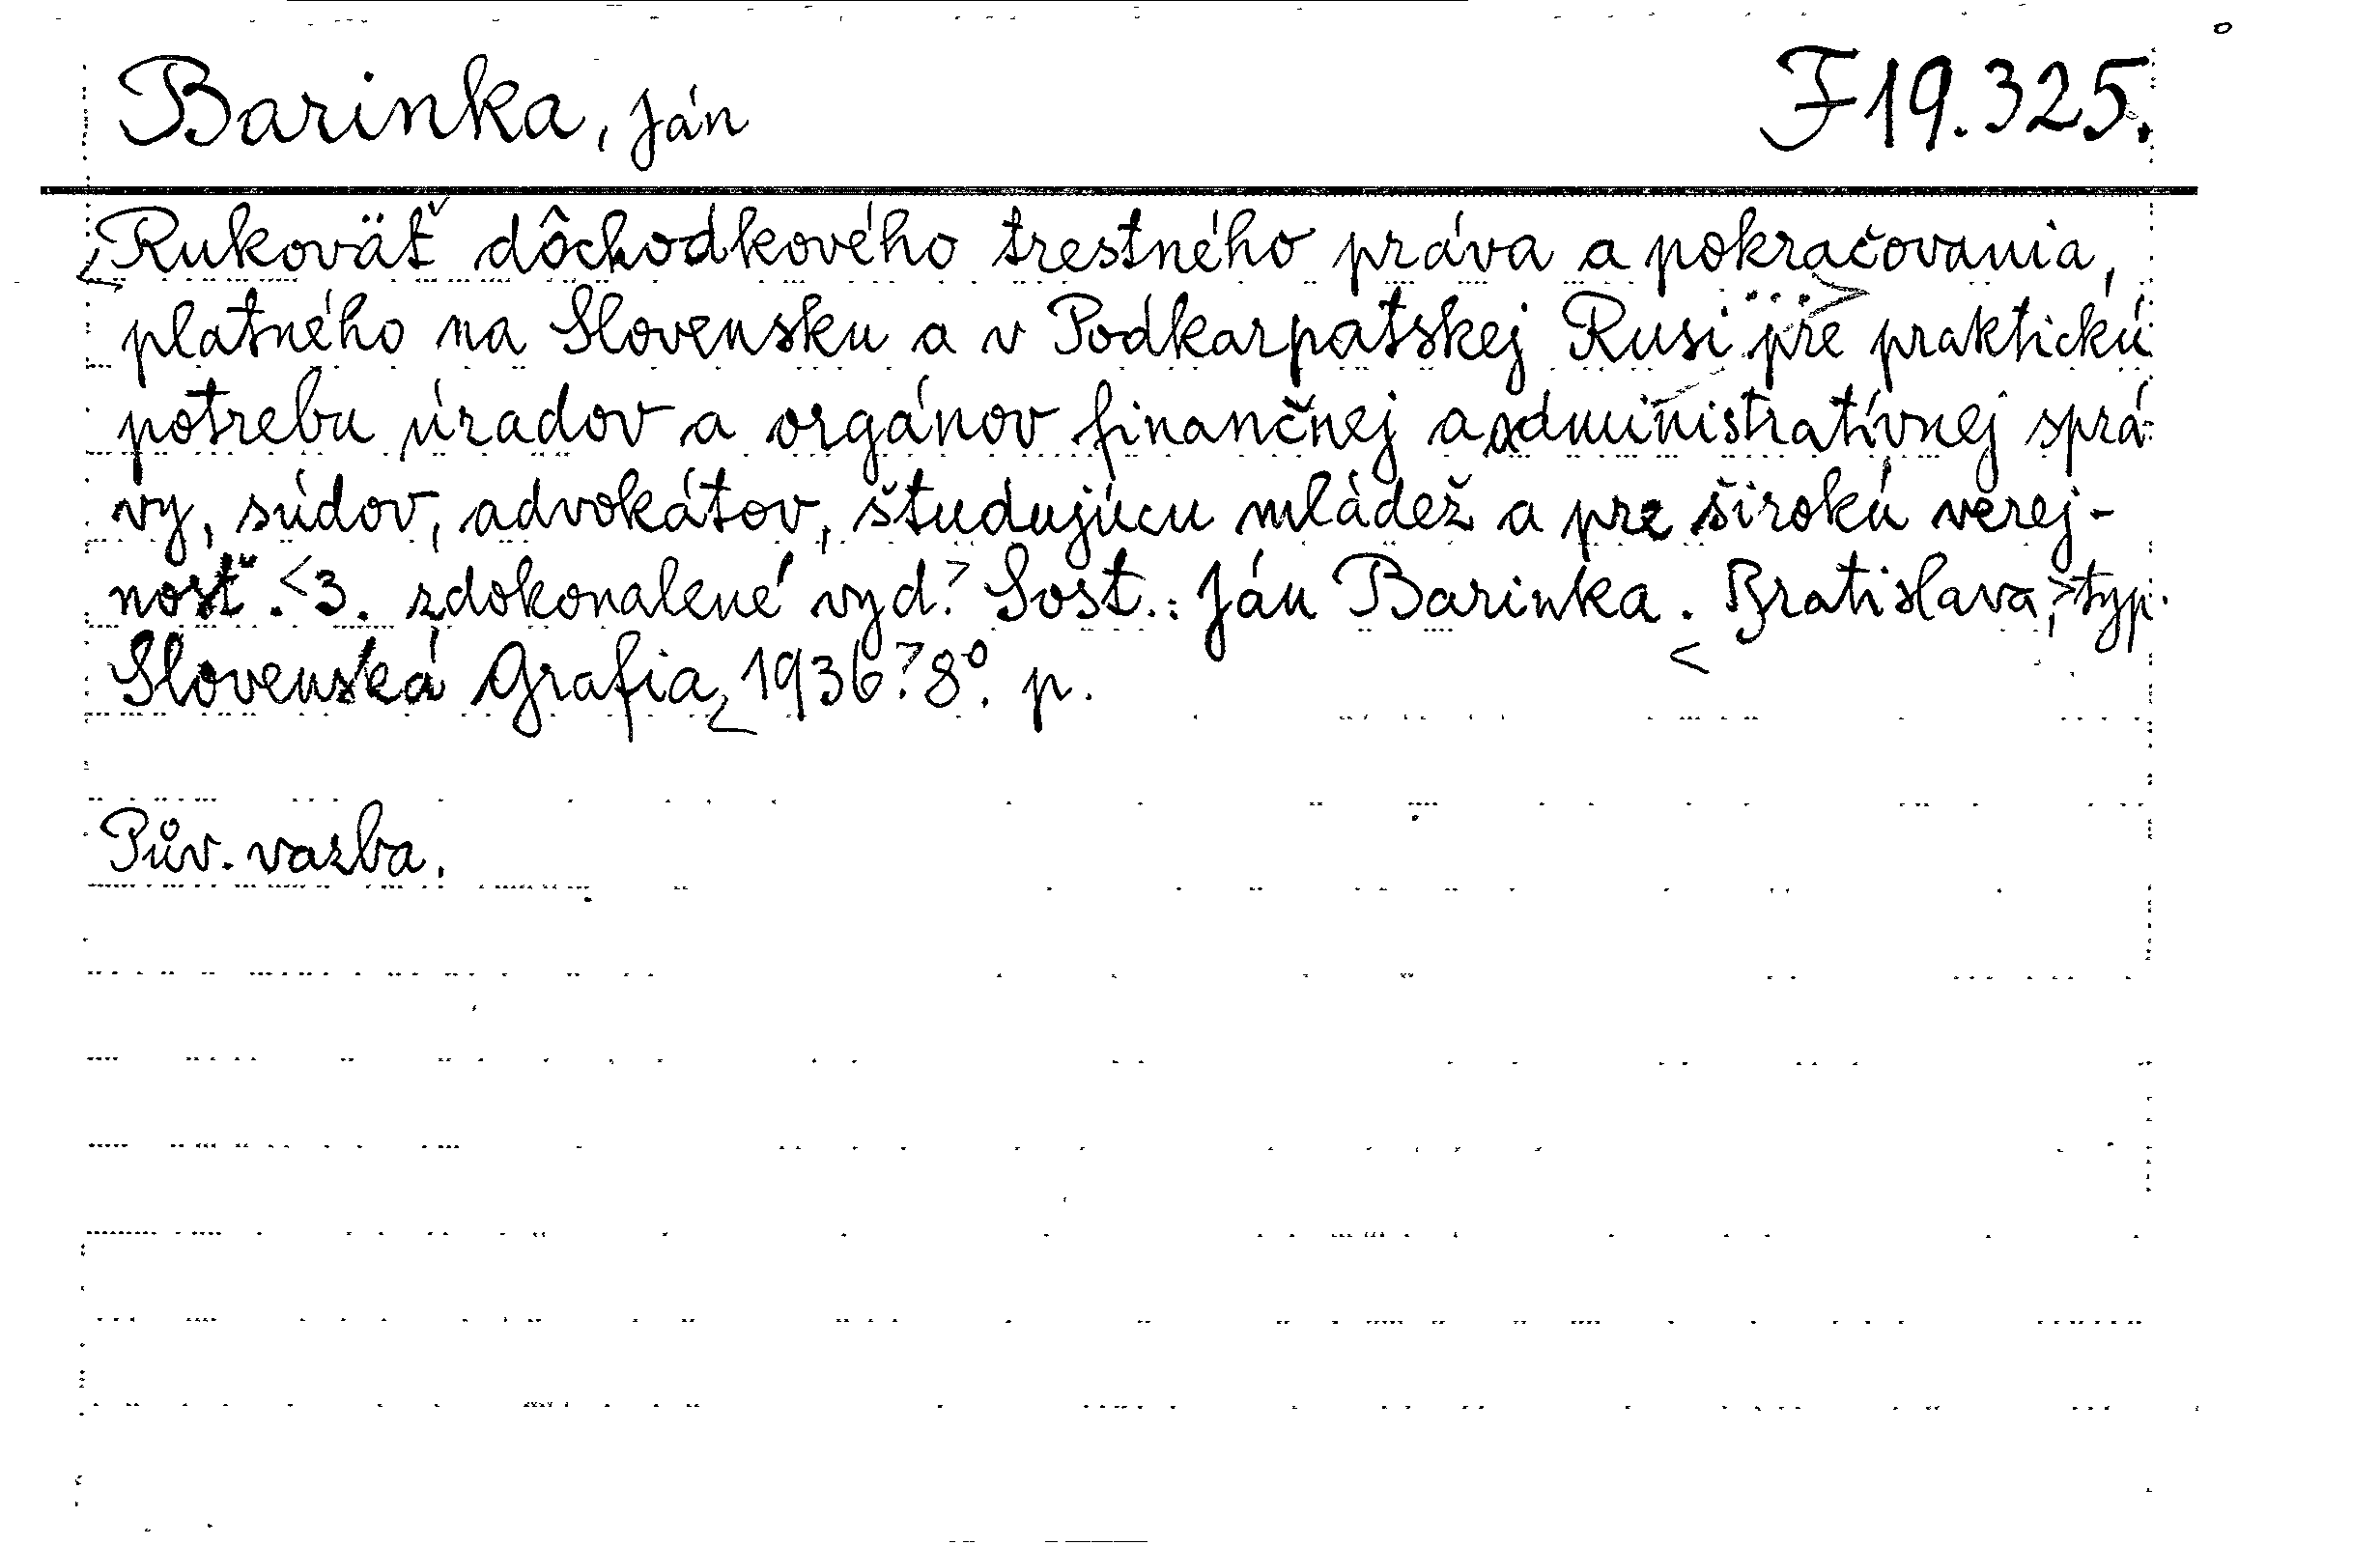 Barinka, Ján F 19.325.
Rukoväť dôchodkového trestného práva a pokračovania,
platného na Slovensku a v Podkarpatskej Rusi ... pre praktickú
potrebu úradov a orgánov finančnej a administratívnej sprá-
vy, súdov, advokátov, študujúcu mládež a pre širokú verej-
nosť. <3. zdokonalené vyd.> Sost.: Ján Barinka. Bratislava, <typ.
Slovenská Grafia, 1936.> 8°. p.
Pův. vazba.